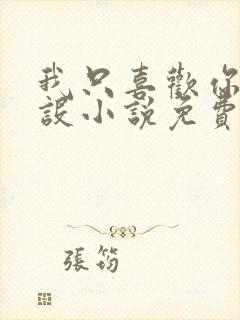 我只喜歡你
設小說免費
張筠